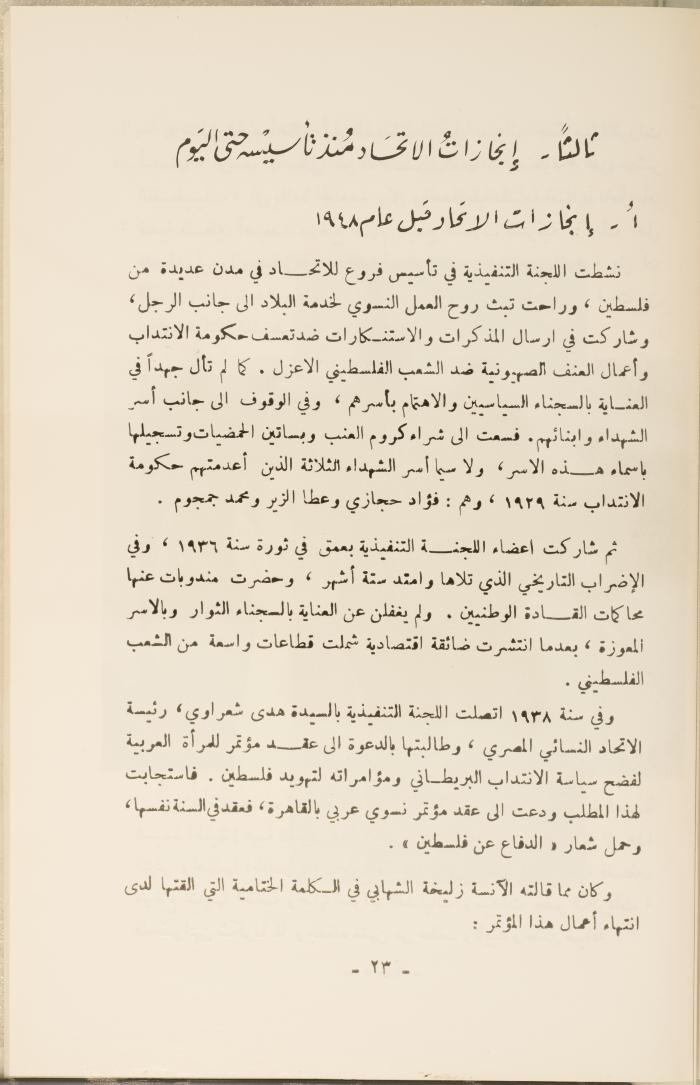 ثالثاً - إنجازات الاتحاد منذ تأسيسه حتى اليوم
أ - إنجازات الاتحاد قبل عام ١٩٤٨
نشطت اللجنة التنفيذية في تأسيس فروع للاتحاد في مدن عديدة من
فلسطين ، وراحت تبث روح العمل النسوي لخدمة البلاد الى جانب الرجل،
وشاركت في ارسال المذكرات والاستنكارات ضد تعسف حكومة الانتداب
وأعمال العنف الصهيونية ضد الشعب الفلسطيني الاعزل . كما لم تأل جهداً في
العناية بالسجناء السياسيين والاهتمام بأسرهم ، وفي الوقوف الى جانب أسر
الشهداء وابنائهم. فسعت الى شراء كروم العنب وبساتين الحمضيات وتسجيلها
باسماء هذه الاسر، ولا سيما أسر الشهداء الثلاثة الذين أعدمتهم حكومة
الانتداب سنة ١٩٢٩ ، وهم : فؤاد حجازي وعطا الزير ومحمد جمجوم .
ثم شاركت اعضاء اللجنة التنفيذية بعمق في ثورة سنة ١٩٣٦ ، وفي
الإضراب التاريخي الذي تلاها وامتد ستة أشهر ، وحضرت مندوبات عنها
محاكمات القادة الوطنيين . ولم يغفلن عن العناية بالسجناء الثوار وبالاسر
المعوزة ، بعدما انتشرت ضائقة اقتصادية شملت قطاعات واسعة من الشعب
الفلسطيني .
وفي سنة ١٩٣٨ اتصلت اللجنة التنفيذية بالسيدة هدى شعراوي، رئيسة
الاتحاد النسائي المصري ، وطالبتها بالدعوة الى عقد مؤتمر للمرأة العربية
لفضح سياسة الانتداب البريطاني ومؤامراته لتهويد فلسطين . فاستجابت
لهذا المطلب ودعت الى عقد مؤتمر نسوي عربي بالقاهرة، فعقد في السنة نفسها،
وحمل شعار « الدفاع عن فلسطين » .
وكان مما قالته الآنسة زليخة الشهابي في الكلمة الختامية التي القتها لدى
انتهاء أعمال هذا المؤتمر :
- ٢٣ -